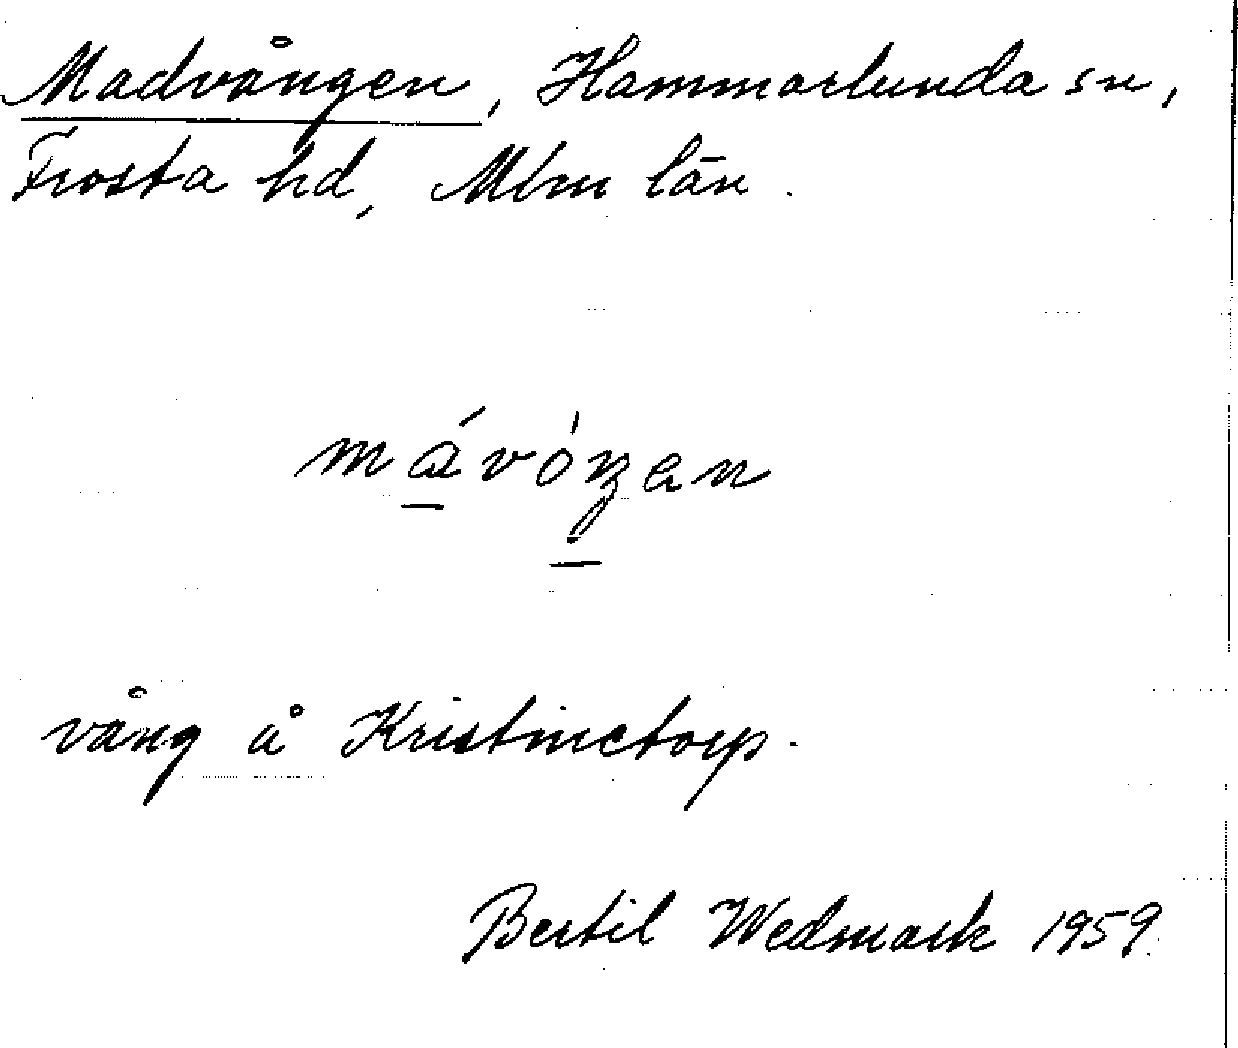 Madvången, Hammarlunda sn,
Frosta hd, Mlm län.
mávóŋen
vång å Kristinetorp.
Bertil Wedmark 1959.